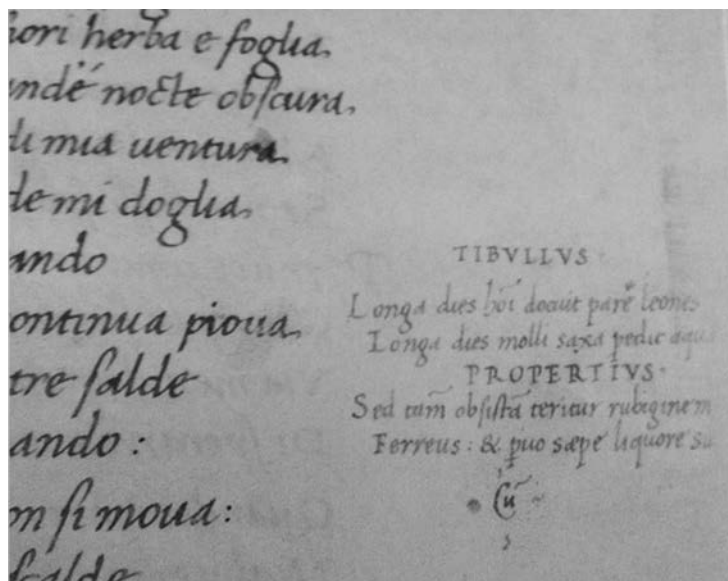 iori herba e foglia.
ande nocte obſcura.
di mia uentura.
de mi doglia.
ando
ontinua pioua.
tre ſalde
ando :
n ſi moua :
ſcalde
TIBVLLVS ·
Longa dies hoı̃ docuit parẽ leones
Longa dies molli saxa pedit aqu
PROPERTIVS ·
Sed tam̃ obſiſtã teritur rubiginem
Ferreus : & ꝑuo sæpe liquore su